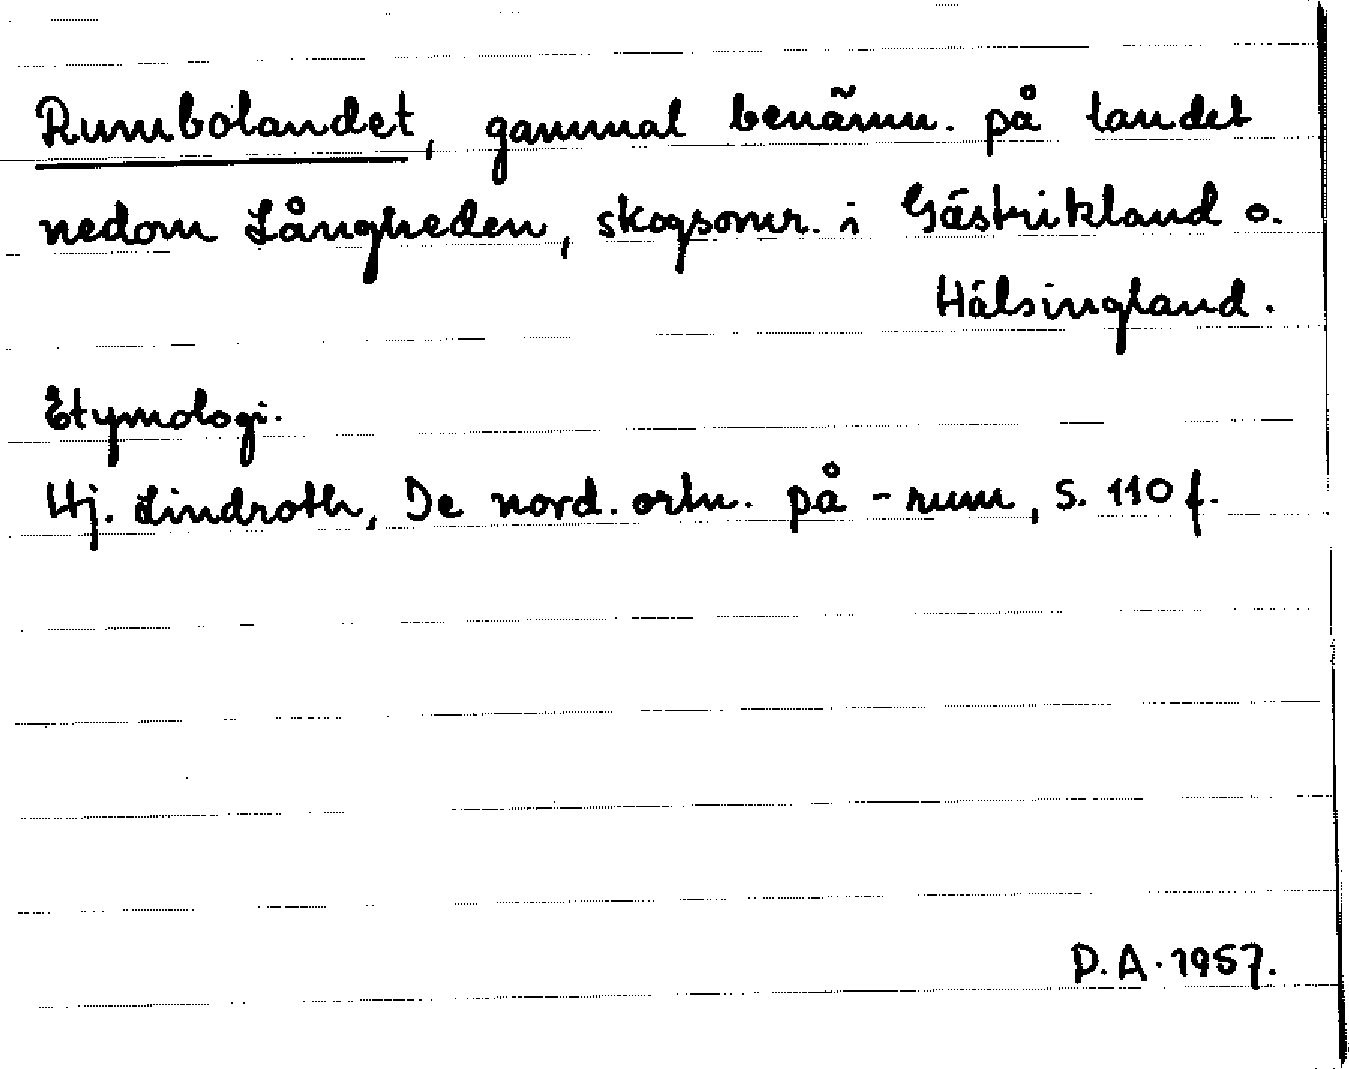 Rumbolandet, gammal benämn. på landet
nedom Långheden, skogsomr. i Gästrikland o.
Hälsingland.
Etymologi.
Hj. Lindroth, De nord. ortn. på -rum, s. 110 f.
D.A. 1957.